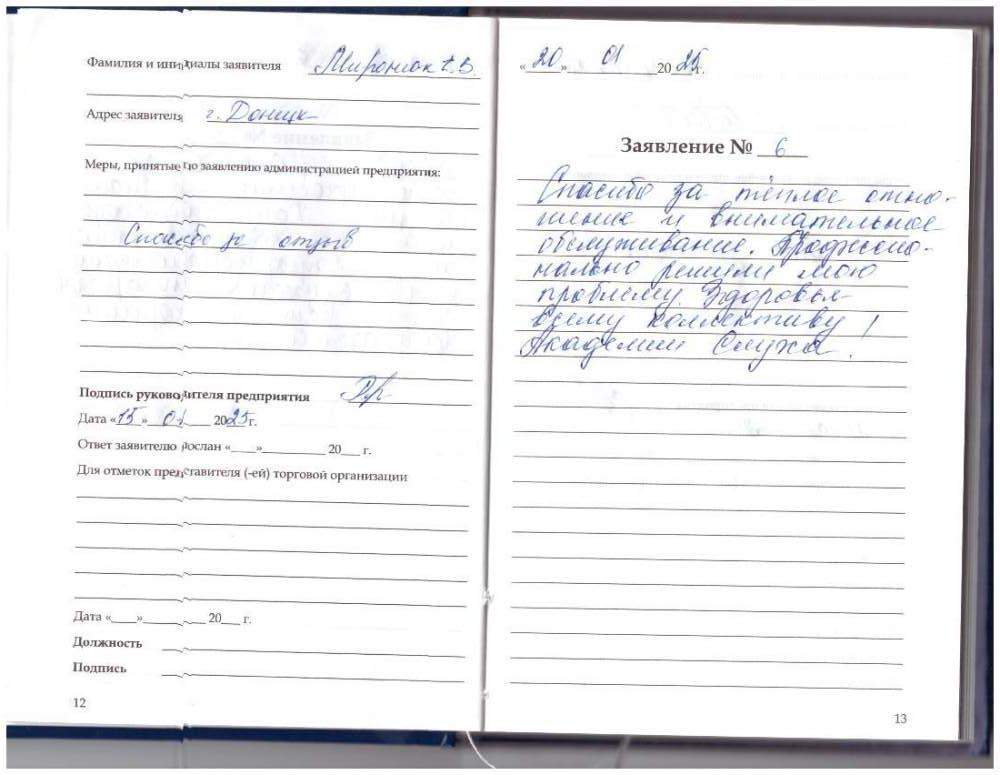 Фамилия и инициалы заявителя Миронюк
Адрес заявителя г. Донецк
Меры, принятые по заявлению администрацией предприятия:
Спасибо за отзыв
Подпись руководителя предприятия
Дата «15» 01 2025 г.
Ответ заявителю послан «___»____________ 20___ г.
Для отметок представителя (-ей) торговой организации
Дата «____»____________ 20___ г.
Должность
Подпись
12
«20» 01 2025 г.
Заявление № 6
Спасибо за тёплое отно-
шение и внимательное
обслуживание. Професио-
нально решили мою
проблему. Здоровья
всему коллективу
Академии Слуха!
13